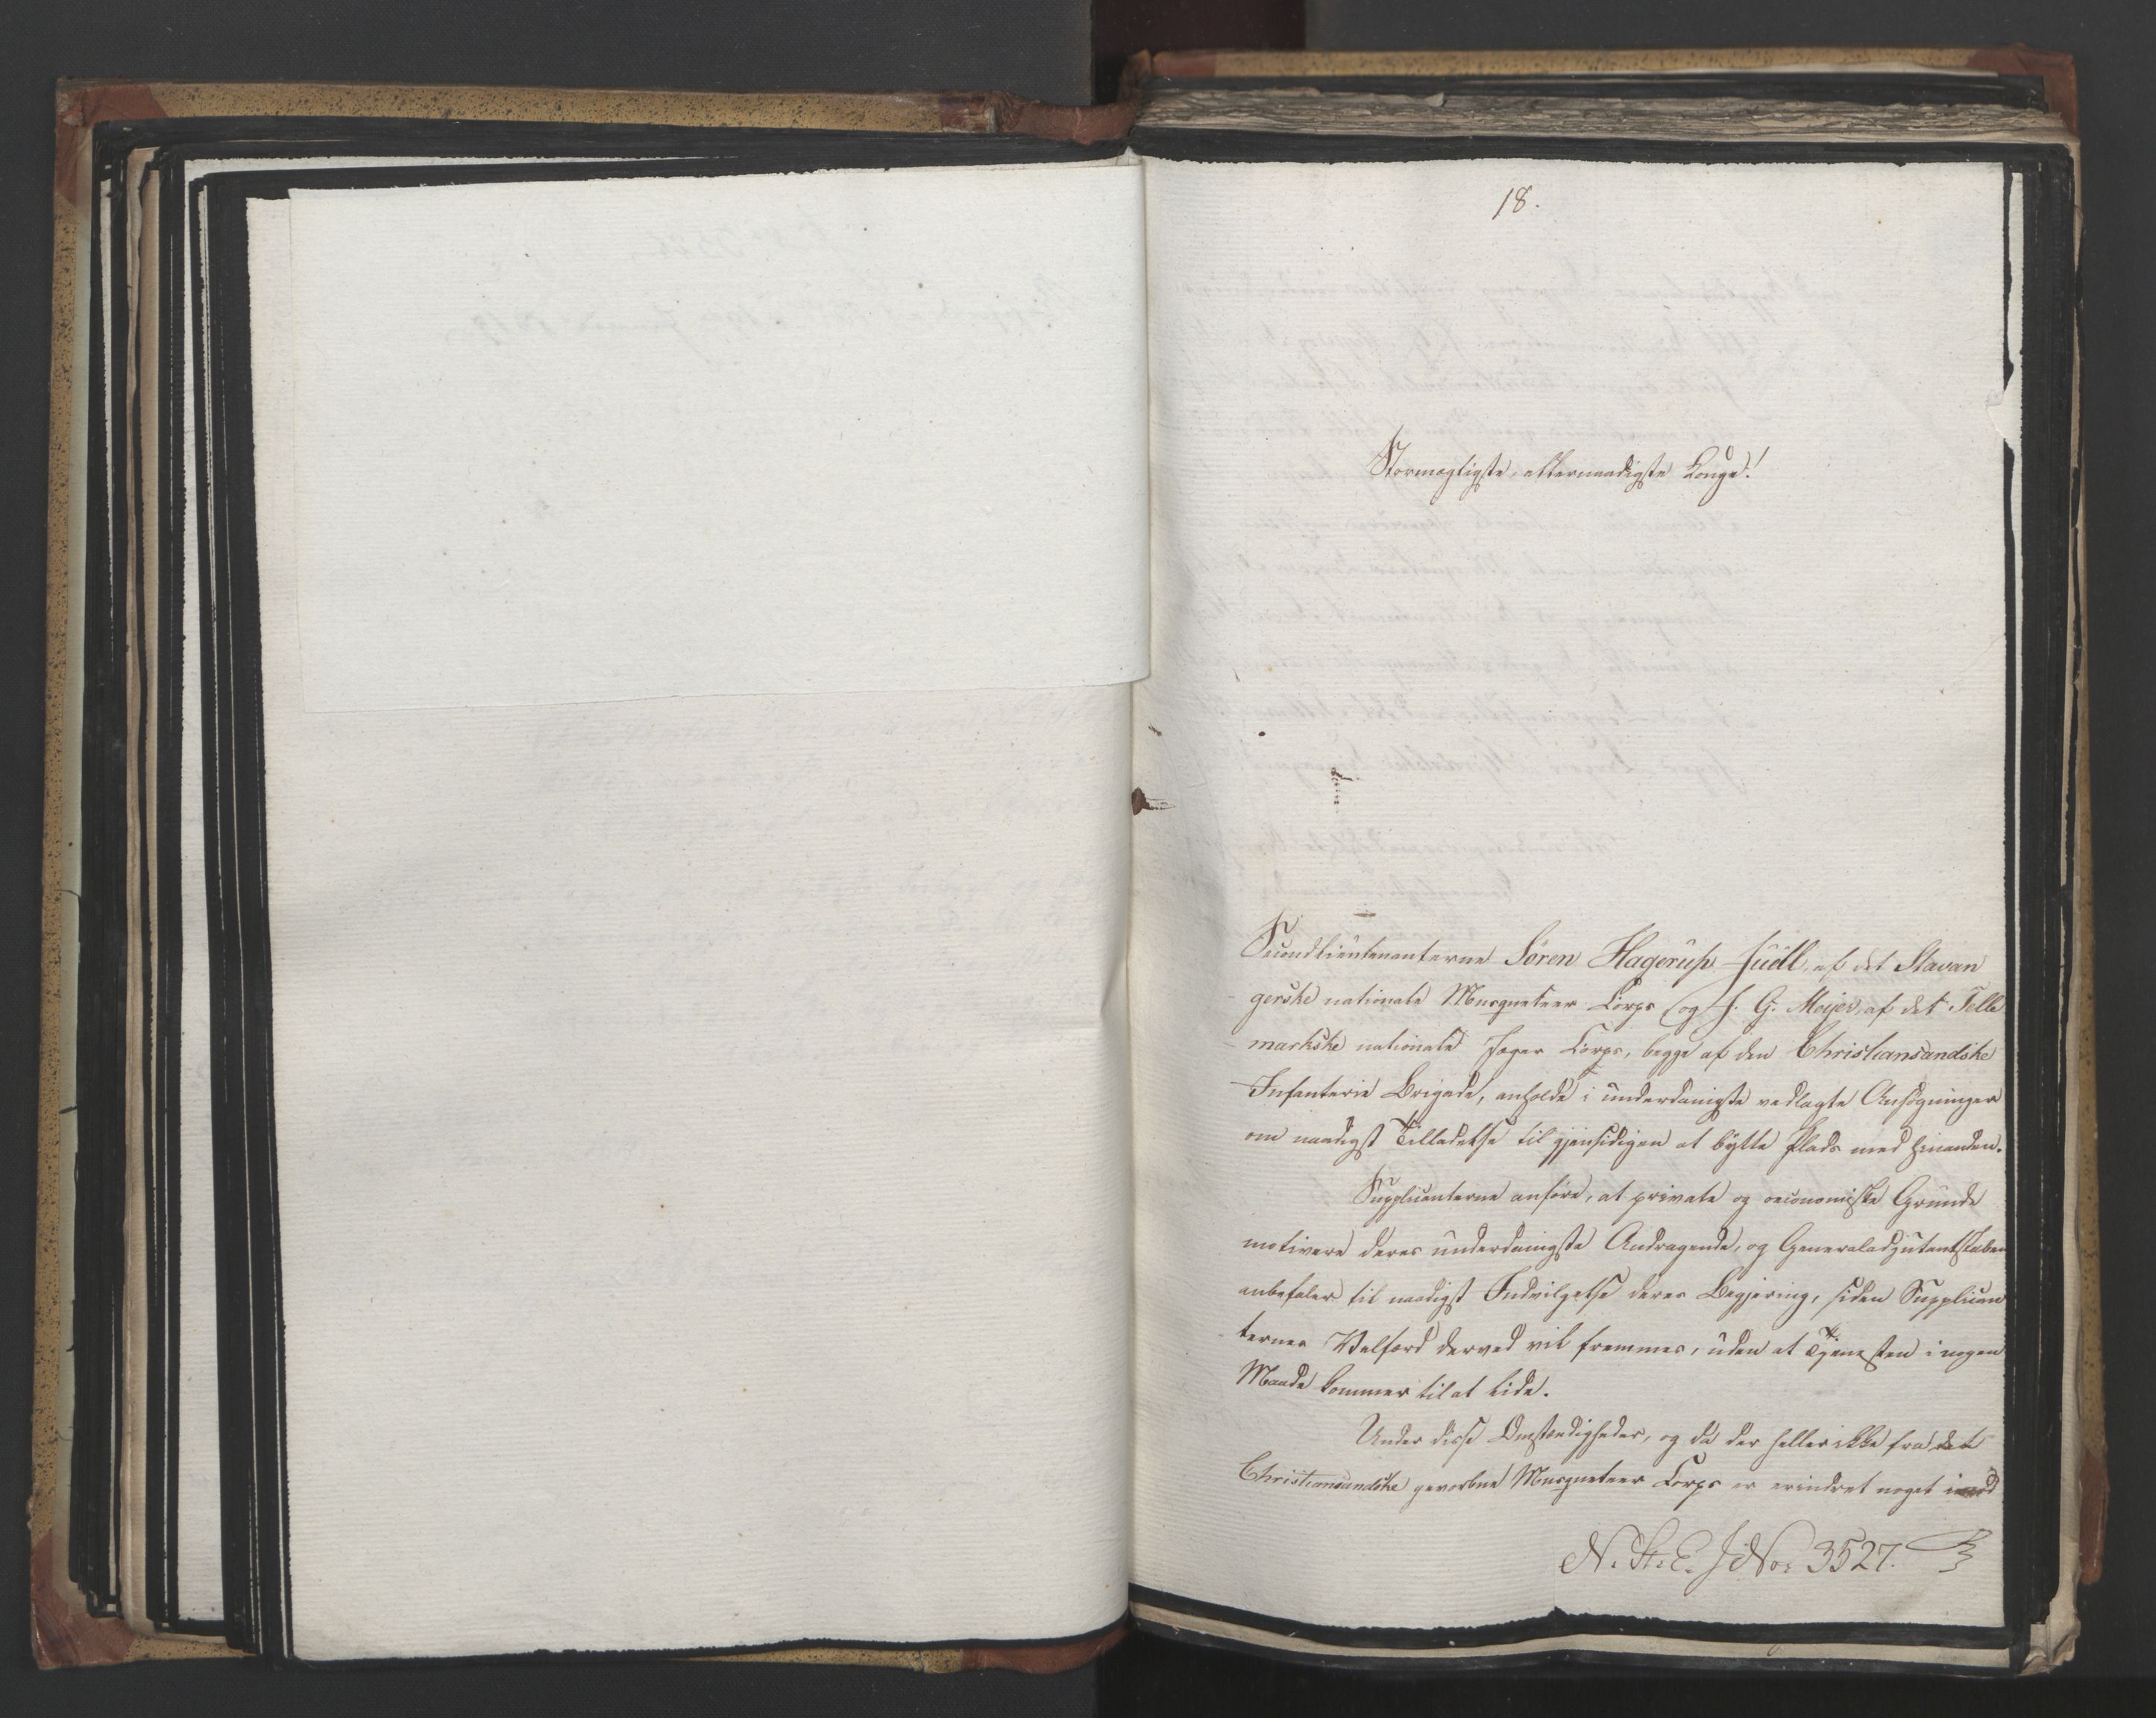 18.
Stormægtigste, allernaadigste Konge!
Secondlieutenanterne Sören Hagerup Juell, af det Stavan
gerske nationale Musqueteer Corps og J. G. Meyer, af det Telle
markske nationale Jæger Corps, begge af den Christiansandske
Infanterie Brigade, anholde i underdanigste vedlagte Ansøgninger
om naadigst Tilladelse til gjensidigen at bÿtte Plads med hinanden.
Supplicanterne anføre, at private og oeconomiske Grunde
motivere deres underdanigste Andragende, og Generaladjutantstaben
anbefaler til naadigst Indvilgelse deres Begjering, siden Supplican
ternes Velfærd derved vil fremmes, uden at Tjenesten i nogen
Maade kommer til at lide.
Under disse Omstændigheder, og da der heller ikke fra det
Christiansandske gevorbne Musqueteer Corps er erindret noget imod
N. St. E. J No: 3527.